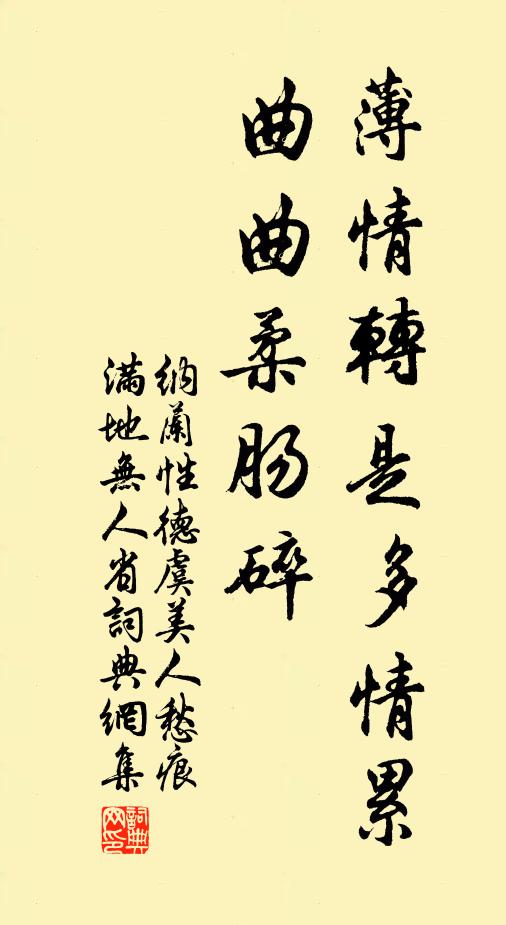 薄情轉是多情累
曲曲柔肠碎
納蘭性德虞美人愁痕
滿地無人省詞典網集
詞典
网印